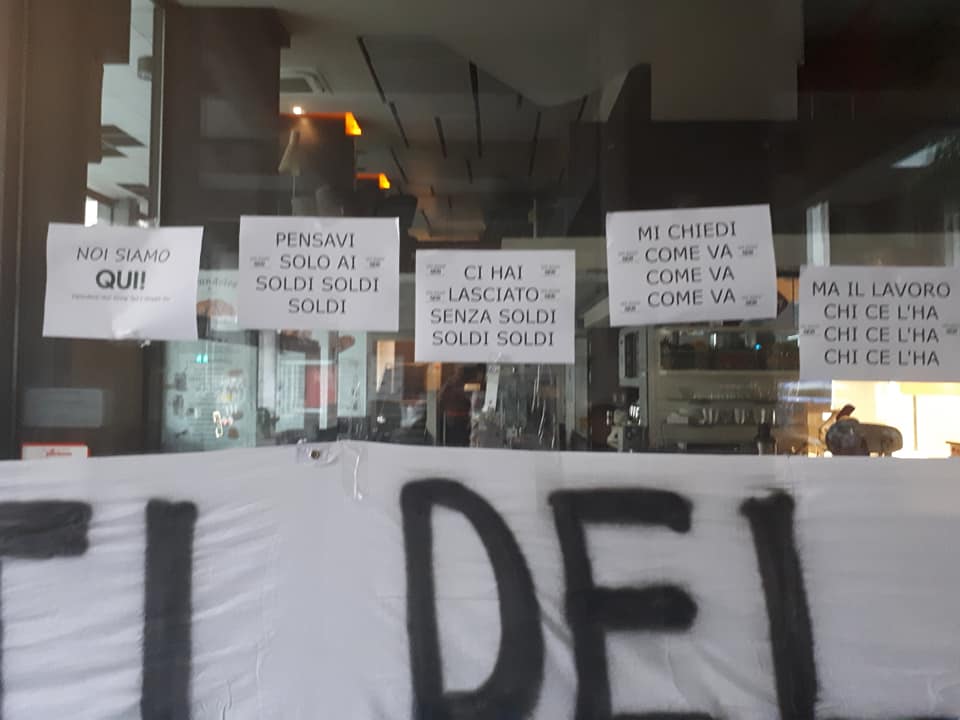 NOI SIAMO
QUI!
PENSAVI
SOLO AI
SOLDI SOLDI
SOLDI
CI HAI
LASCIATO
SENZA SOLDI
SOLDI SOLDI
MI CHIEDI
COME VA
COME VA
COME VA
MA IL LAVORO
CHI CE L'HA
CHI CE L'HA
CHI CE L'HA
TI DEI